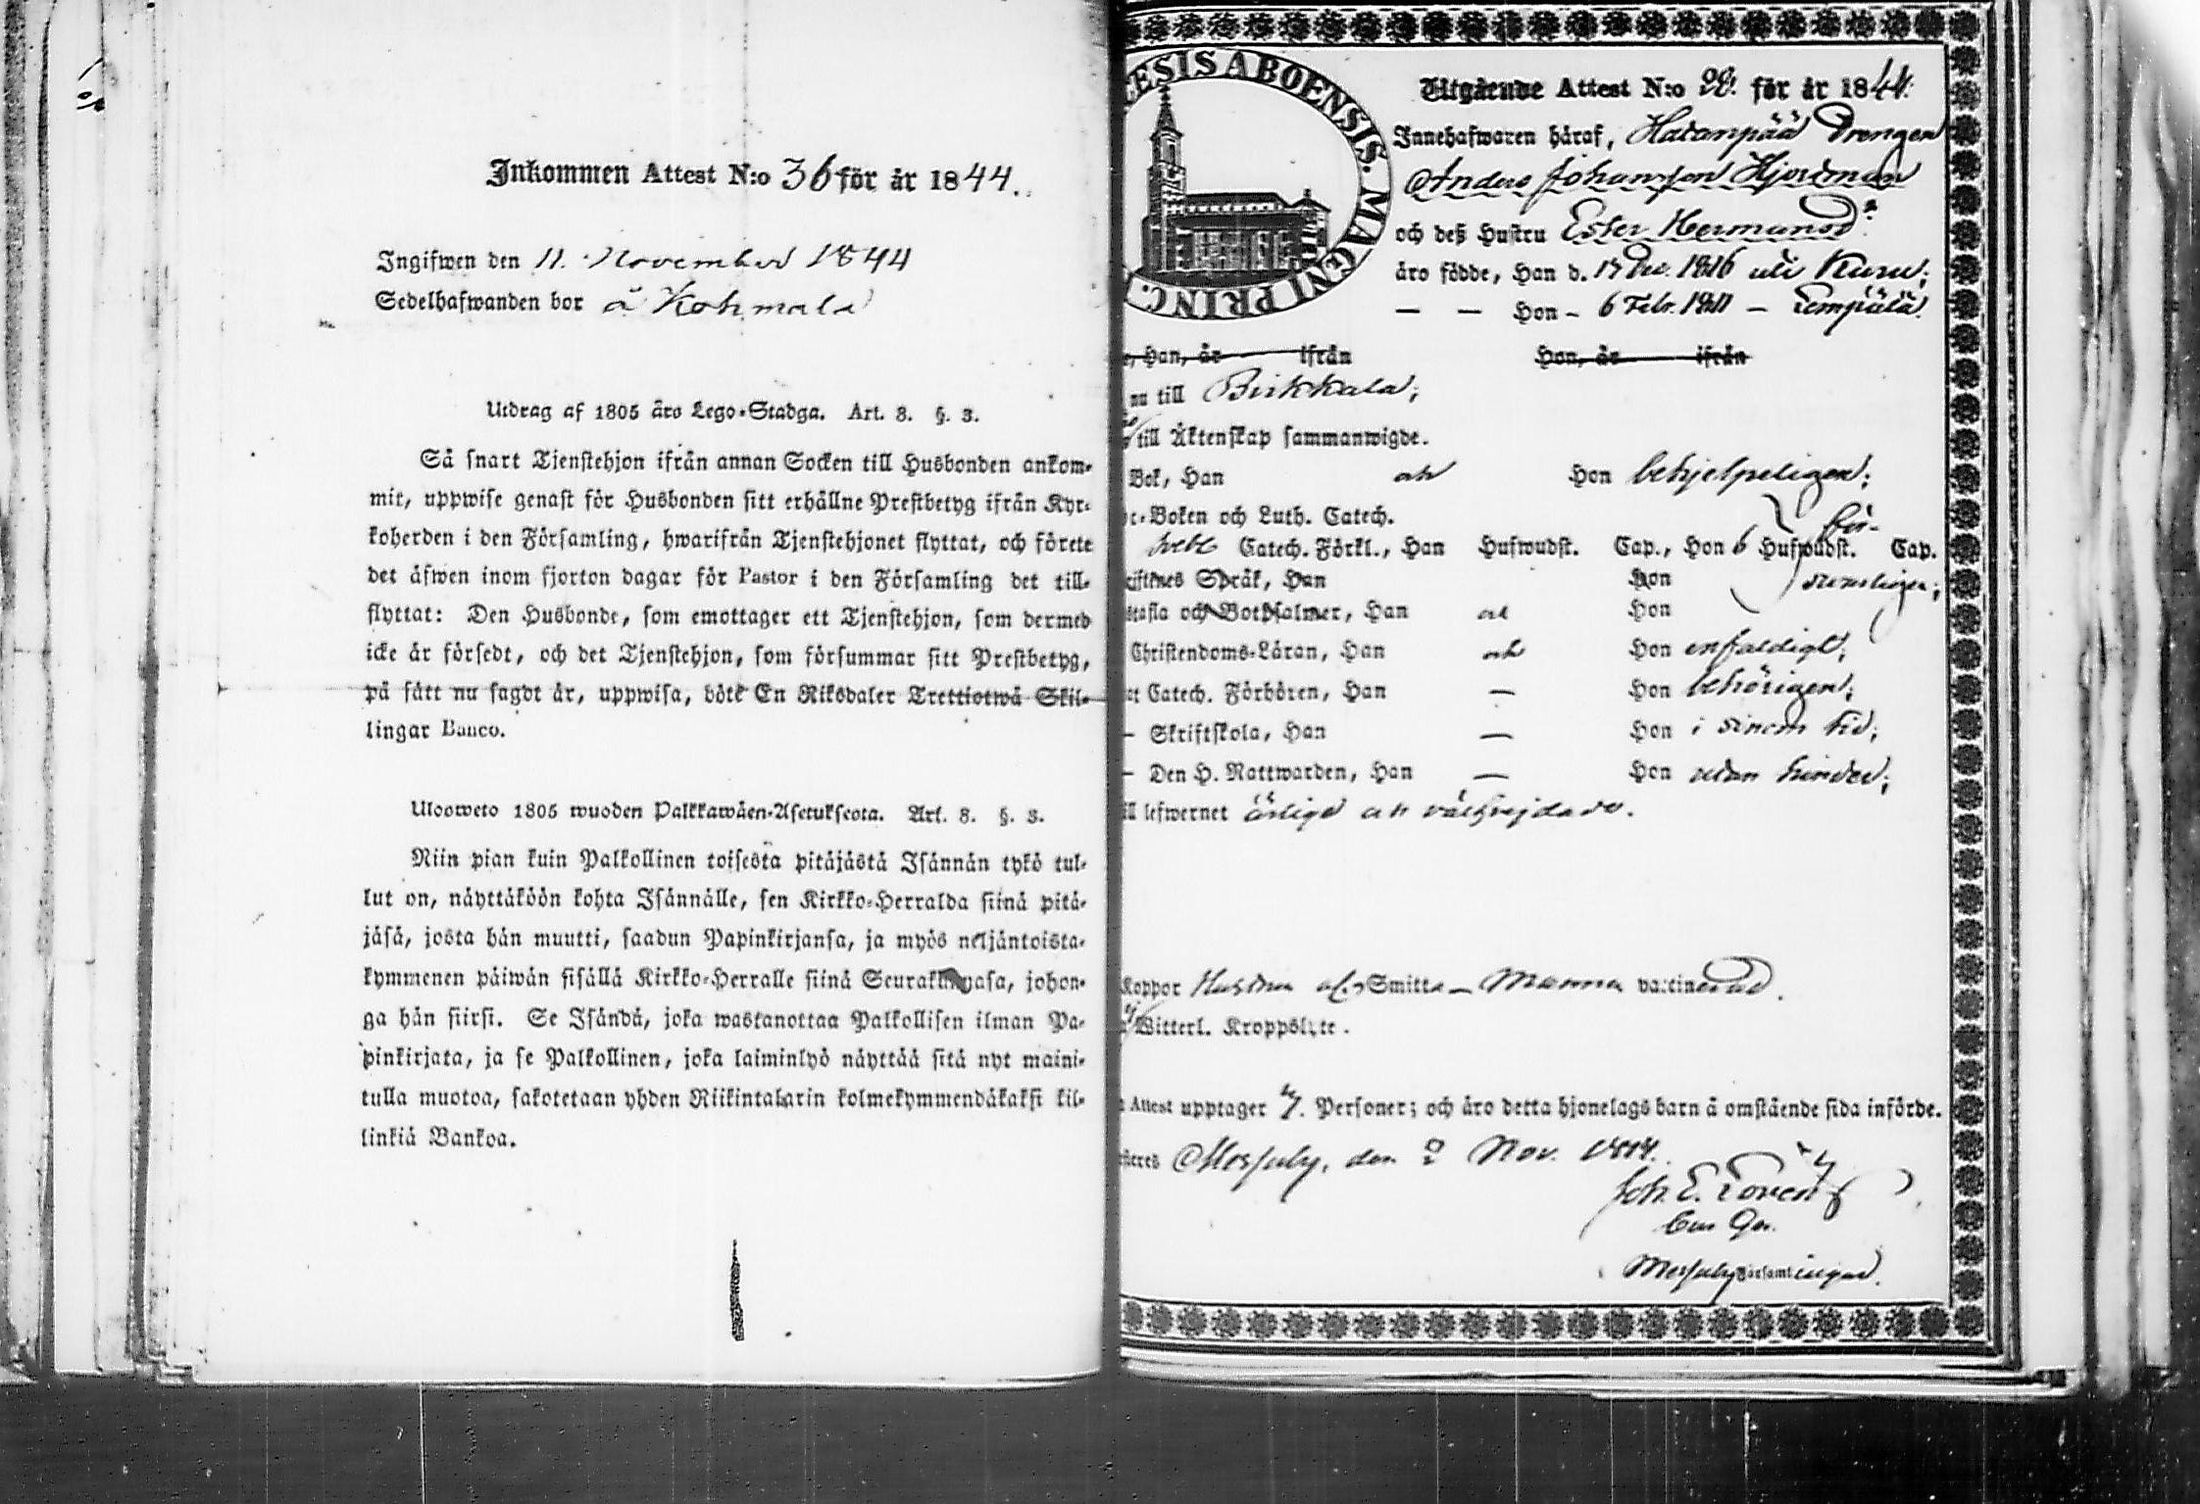 Inkommen Attest N:o 36 för år 1844.
Ingifwen den 11. November 1844
Sedelhafwanden bor å Kohmala
Utdrag af 1805 års Lego-Stadga. Art. 8. §. 3.
Så snart Tjenstehjon ifrån annan Socken till Husbonden ankom-
mit, uppwise genast för Husbonden sitt erhållne Prestbetyg ifrån Kyr-
koherden i den Församling, hwarifrån Tjenstehjonet flyttat, och förete
det äfwen inom fjorton dagar för Pastor i den Församling det till-
flyttat: Den Husbonde, som emottager ett Tjenstehjon, som dermed
icke är försedt, och det Tjenstehjon, som försummar sitt Prestbetyg,
på sätt nu sagdt är, uppwisa, böte En Riksdaler Trettiotwå Skil-
lingar Banco.
Uloosweto 1805 wuoden Palkkawäen-Asetuksesta. Art. 8. §. 3.
Niin pian kuin Palkollinen toisesta pitäjästä Isännän tykö tul-
lut on, näyttäköön kohta Isännälle, sen Kirkko-Herralda siinä pitä-
jäsä, josta hän muutti, saadun Papinkirjansa, ja myös neljäntoista-
kymmenen päiwän sisällä Kirkko-Herralle siinä Seurakunnasa, johon-
ga hän siirsi. Se Isändä, joka wastanottaa Palkollisen ilman Pa-
pinkirjata, ja se Palkollinen, joka laiminlyö näyttää sitä nyt maini-
tulla muotoa, sakotetaan yhden Riikintalarin kolmekymmendäkaksi kil-
linkiä Bankoa.
ESIS ABOENSIS. MAGNI PRINC.
Utgående Attest N:o för år 1844.
Innehafwaren häraf, Hatanpää Drengen
Anders Johansson Hjordman
och deß Hustru Ester Hermansd:r
äro födde, Han d. 17 Dec. 1816 uti Kuru;
— — Hon - 6 Febr. 1811 — Lempälä
, Han, år ifrån Hon, år ifrån
nu till Birkkala;
till Äktenskap sammanwigde.
Bok, Han och Hon behjelpeligen;
-Boken och Luth. Catech.
Catech. Förkl., Han Hufwudst. Cap., Hon 6 Hufwudst. Cap. för-
Språk, Han Hon svarligen;
tafla och Botpsalmer, Han och Hon
Christendoms-Läran, Han och Hon enfaldigt;
Catech. Förhören, Han — Hon behörigen;
— Skriftskola, Han — Hon i sinom tid;
— Den H. Nattwarden, Han — Hon utan hinder;
ill lefwernet ärlige och välfrejdade.
Koppor Hustrun af, Smitta — Manna vaccinerad.
Witterl. Kroppslyte.
Attest upptager 4. Personer; och äro detta hjonelags barn å omstående sida införde.
Messuby, den 2 Nov. 1844.
Joh. E. Lovén
Messuby Församlingar.